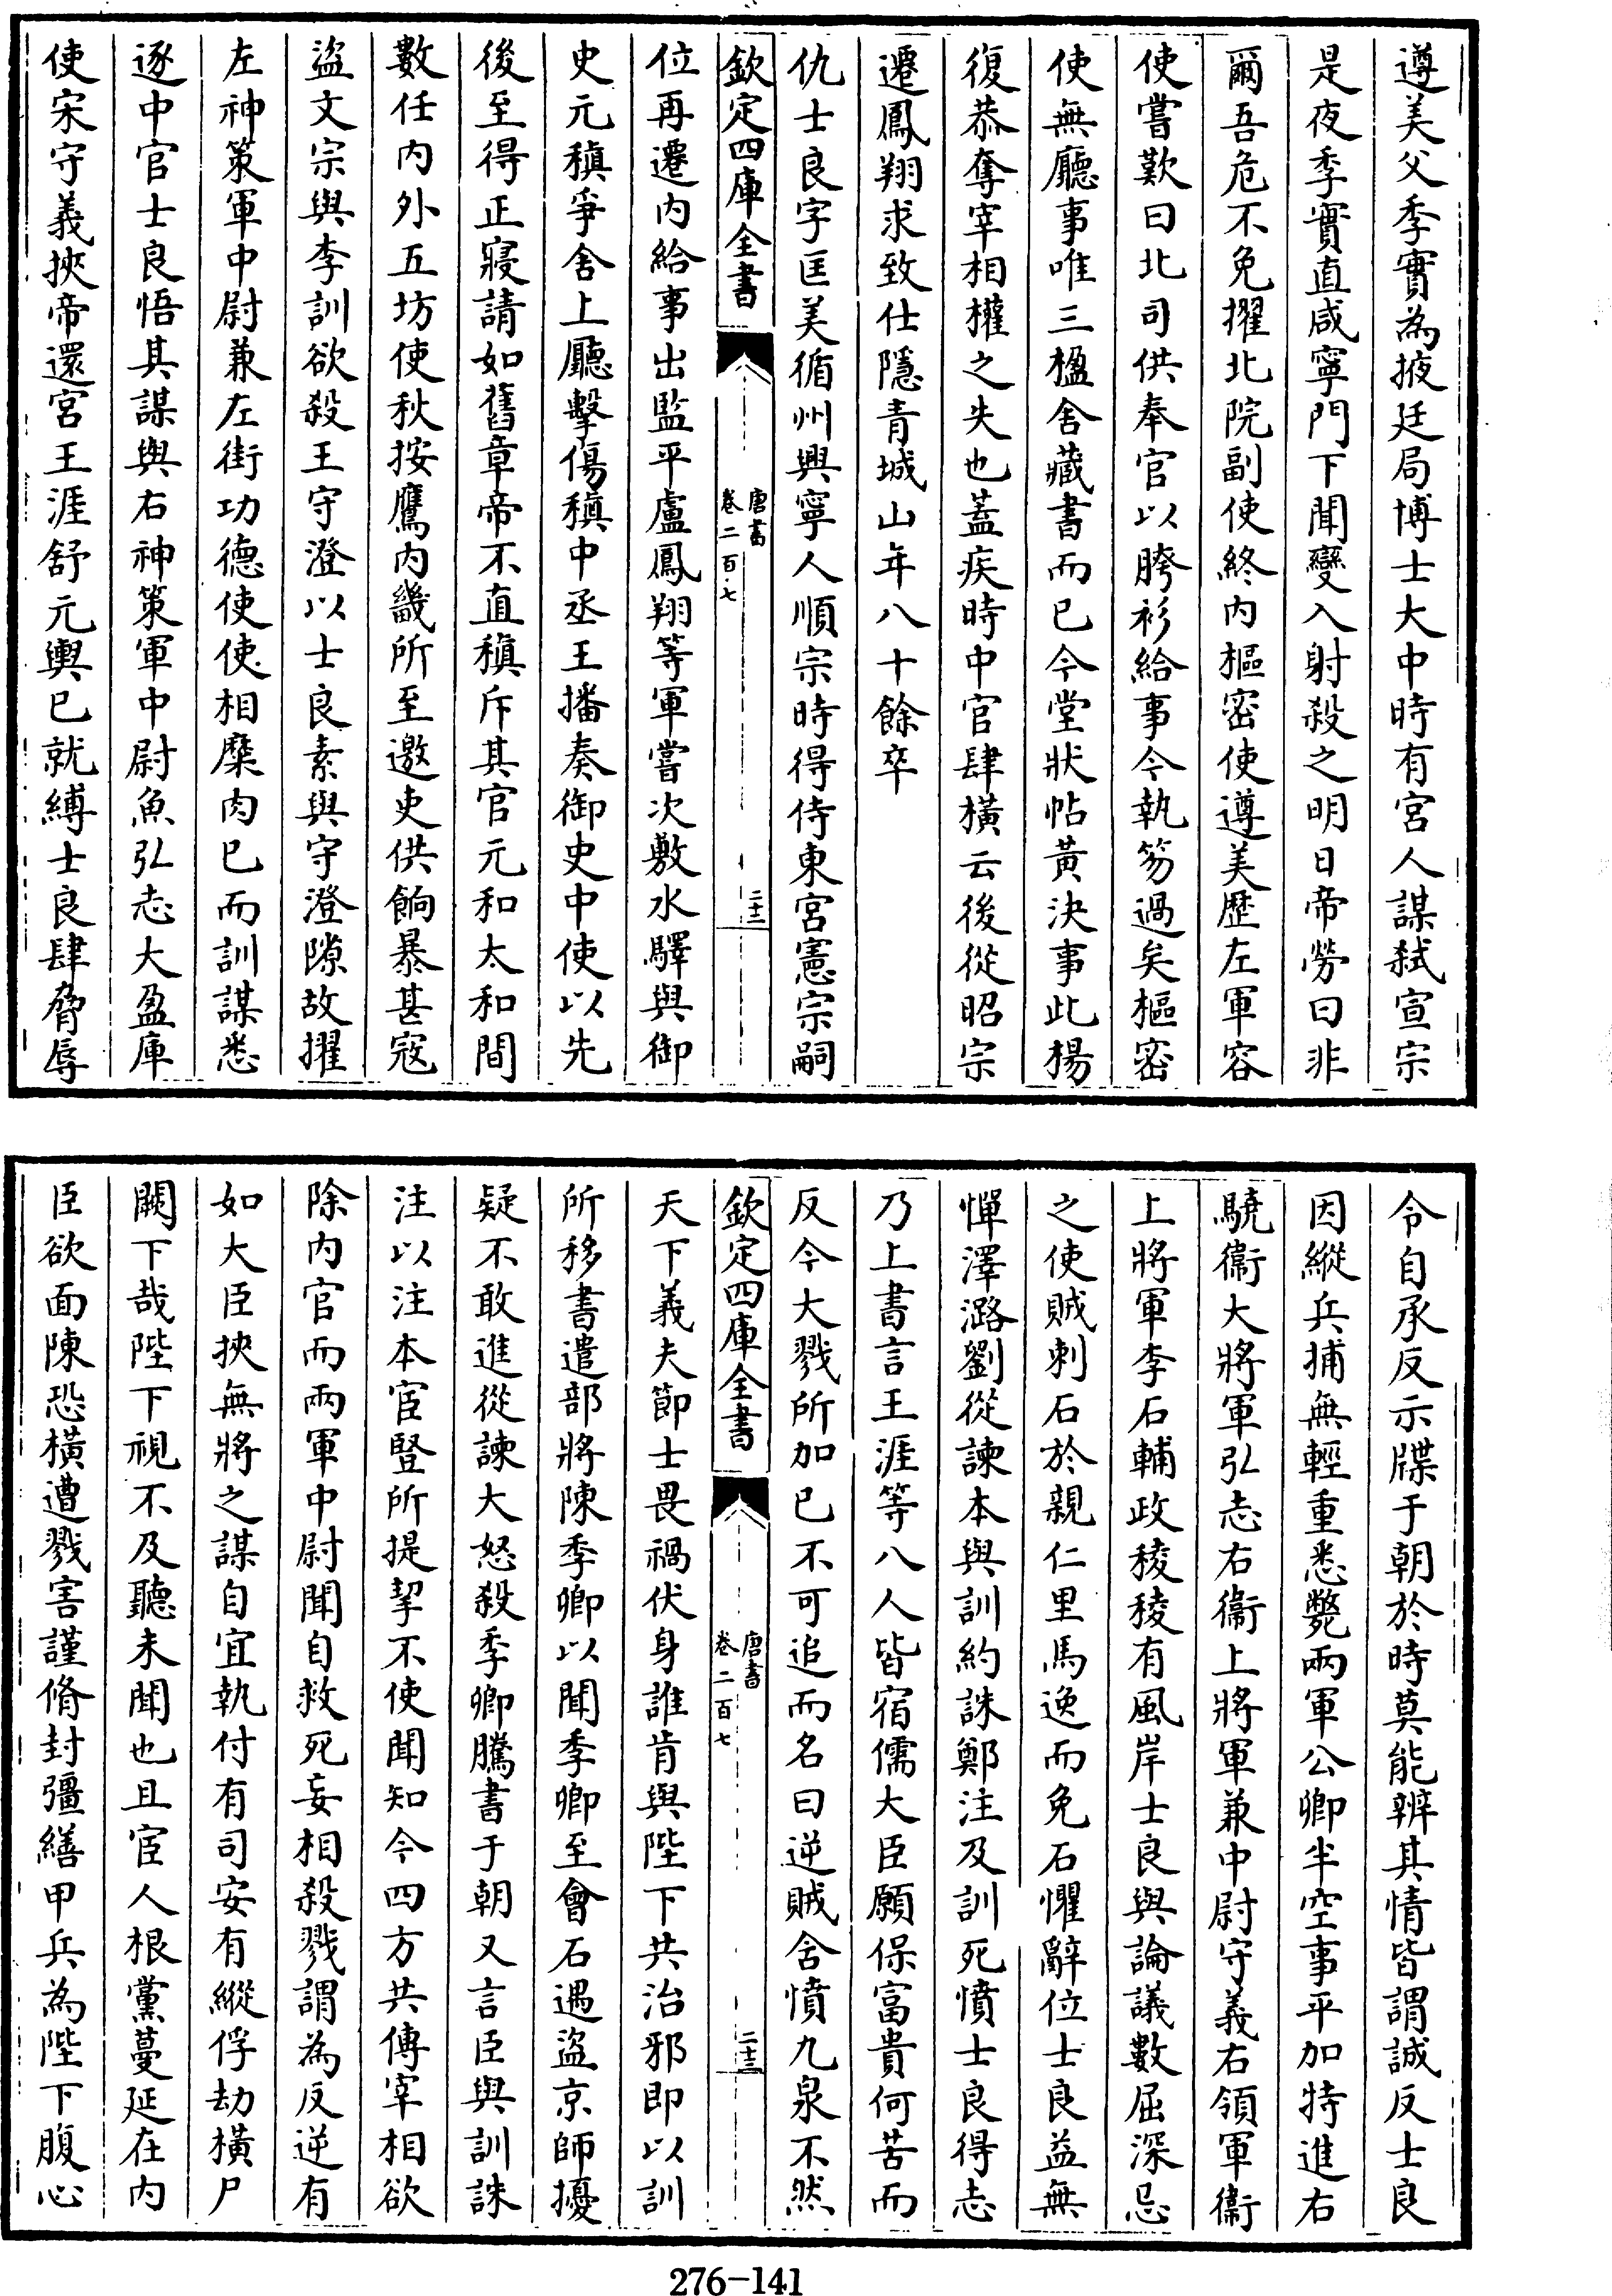 遵美父季實為掖廷局博士大中時有宮人謀弑宣宗
是夜季實直咸寧門下聞變入射殺之明日帝勞曰非
爾吾危不免擢北院副使終内樞密使遵美歷左軍容
使嘗歎曰北司供奉官以胯衫給事今執笏過矣樞密
使無廳事唯三楹舍藏書而已今堂狀帖黃決事此楊
復恭奪宰相權之失也蓋疾時中官肆橫云後從昭宗
遷鳳翔求致仕隱青城山年八十餘卒
仇士良字匡美循州興寧人順宗時得侍東宮憲宗嗣
欽定四庫全書
唐書
卷二百七
二十二
位再遷内給事出監平盧鳳翔等軍嘗次敷水驛與御
史元稹爭舍上廳擊傷稹中丞王播奏御史中使以先
後至得正寢請如舊章帝不直稹斥其官元和太和間
數任内外五坊使秋按鷹内畿所至邀吏供餉暴甚寇
盜文宗與李訓欲殺王守澄以士良素與守澄隙故擢
左神策軍中尉兼左街功德使使相糜肉已而訓謀悉
逐中官士良悟其謀與右神策軍中尉魚弘志大盈庫
使宋守義挾帝還宮王涯舒元輿已就縛士良肆脅辱
令自承反示牒于朝於時莫能辨其情皆謂誠反士良
因縱兵捕無輕重悉斃兩軍公卿半空事平加特進右
驍衞大將軍弘志右衞上將軍兼中尉守義右領軍衞
上將軍李石輔政稜稜有風岸士良與論議數屈深忌
之使賊刺石於親仁里馬逸而免石懼辭位士良益無
憚澤潞劉從諫本與訓約誅鄭注及訓死憤士良得志
乃上書言王涯等八人皆宿儒大臣願保富貴何苦而
反今大戮所加已不可追而名曰逆賊含憤九泉不然
欽定四庫全書
唐書
卷二百七
二十三
天下義夫節士畏禍伏身誰肯與陛下共治邪即以訓
所移書遣部將陳季卿以聞季卿至會石遇盜京師擾
疑不敢進從諫大怒殺季卿騰書于朝又言臣與訓誅
注以注本宦豎所提挈不使聞知今四方共傳宰相欲
除内官而兩軍中尉聞自救死妄相殺戮謂為反逆有
如大臣挾無將之謀自宜執付有司安有縱俘劫橫尸
闕下哉陛下視不及聽未聞也且宦人根黨蔓延在内
臣欲面陳恐橫遭戮害謹脩封疆繕甲兵為陛下腹心
276-141